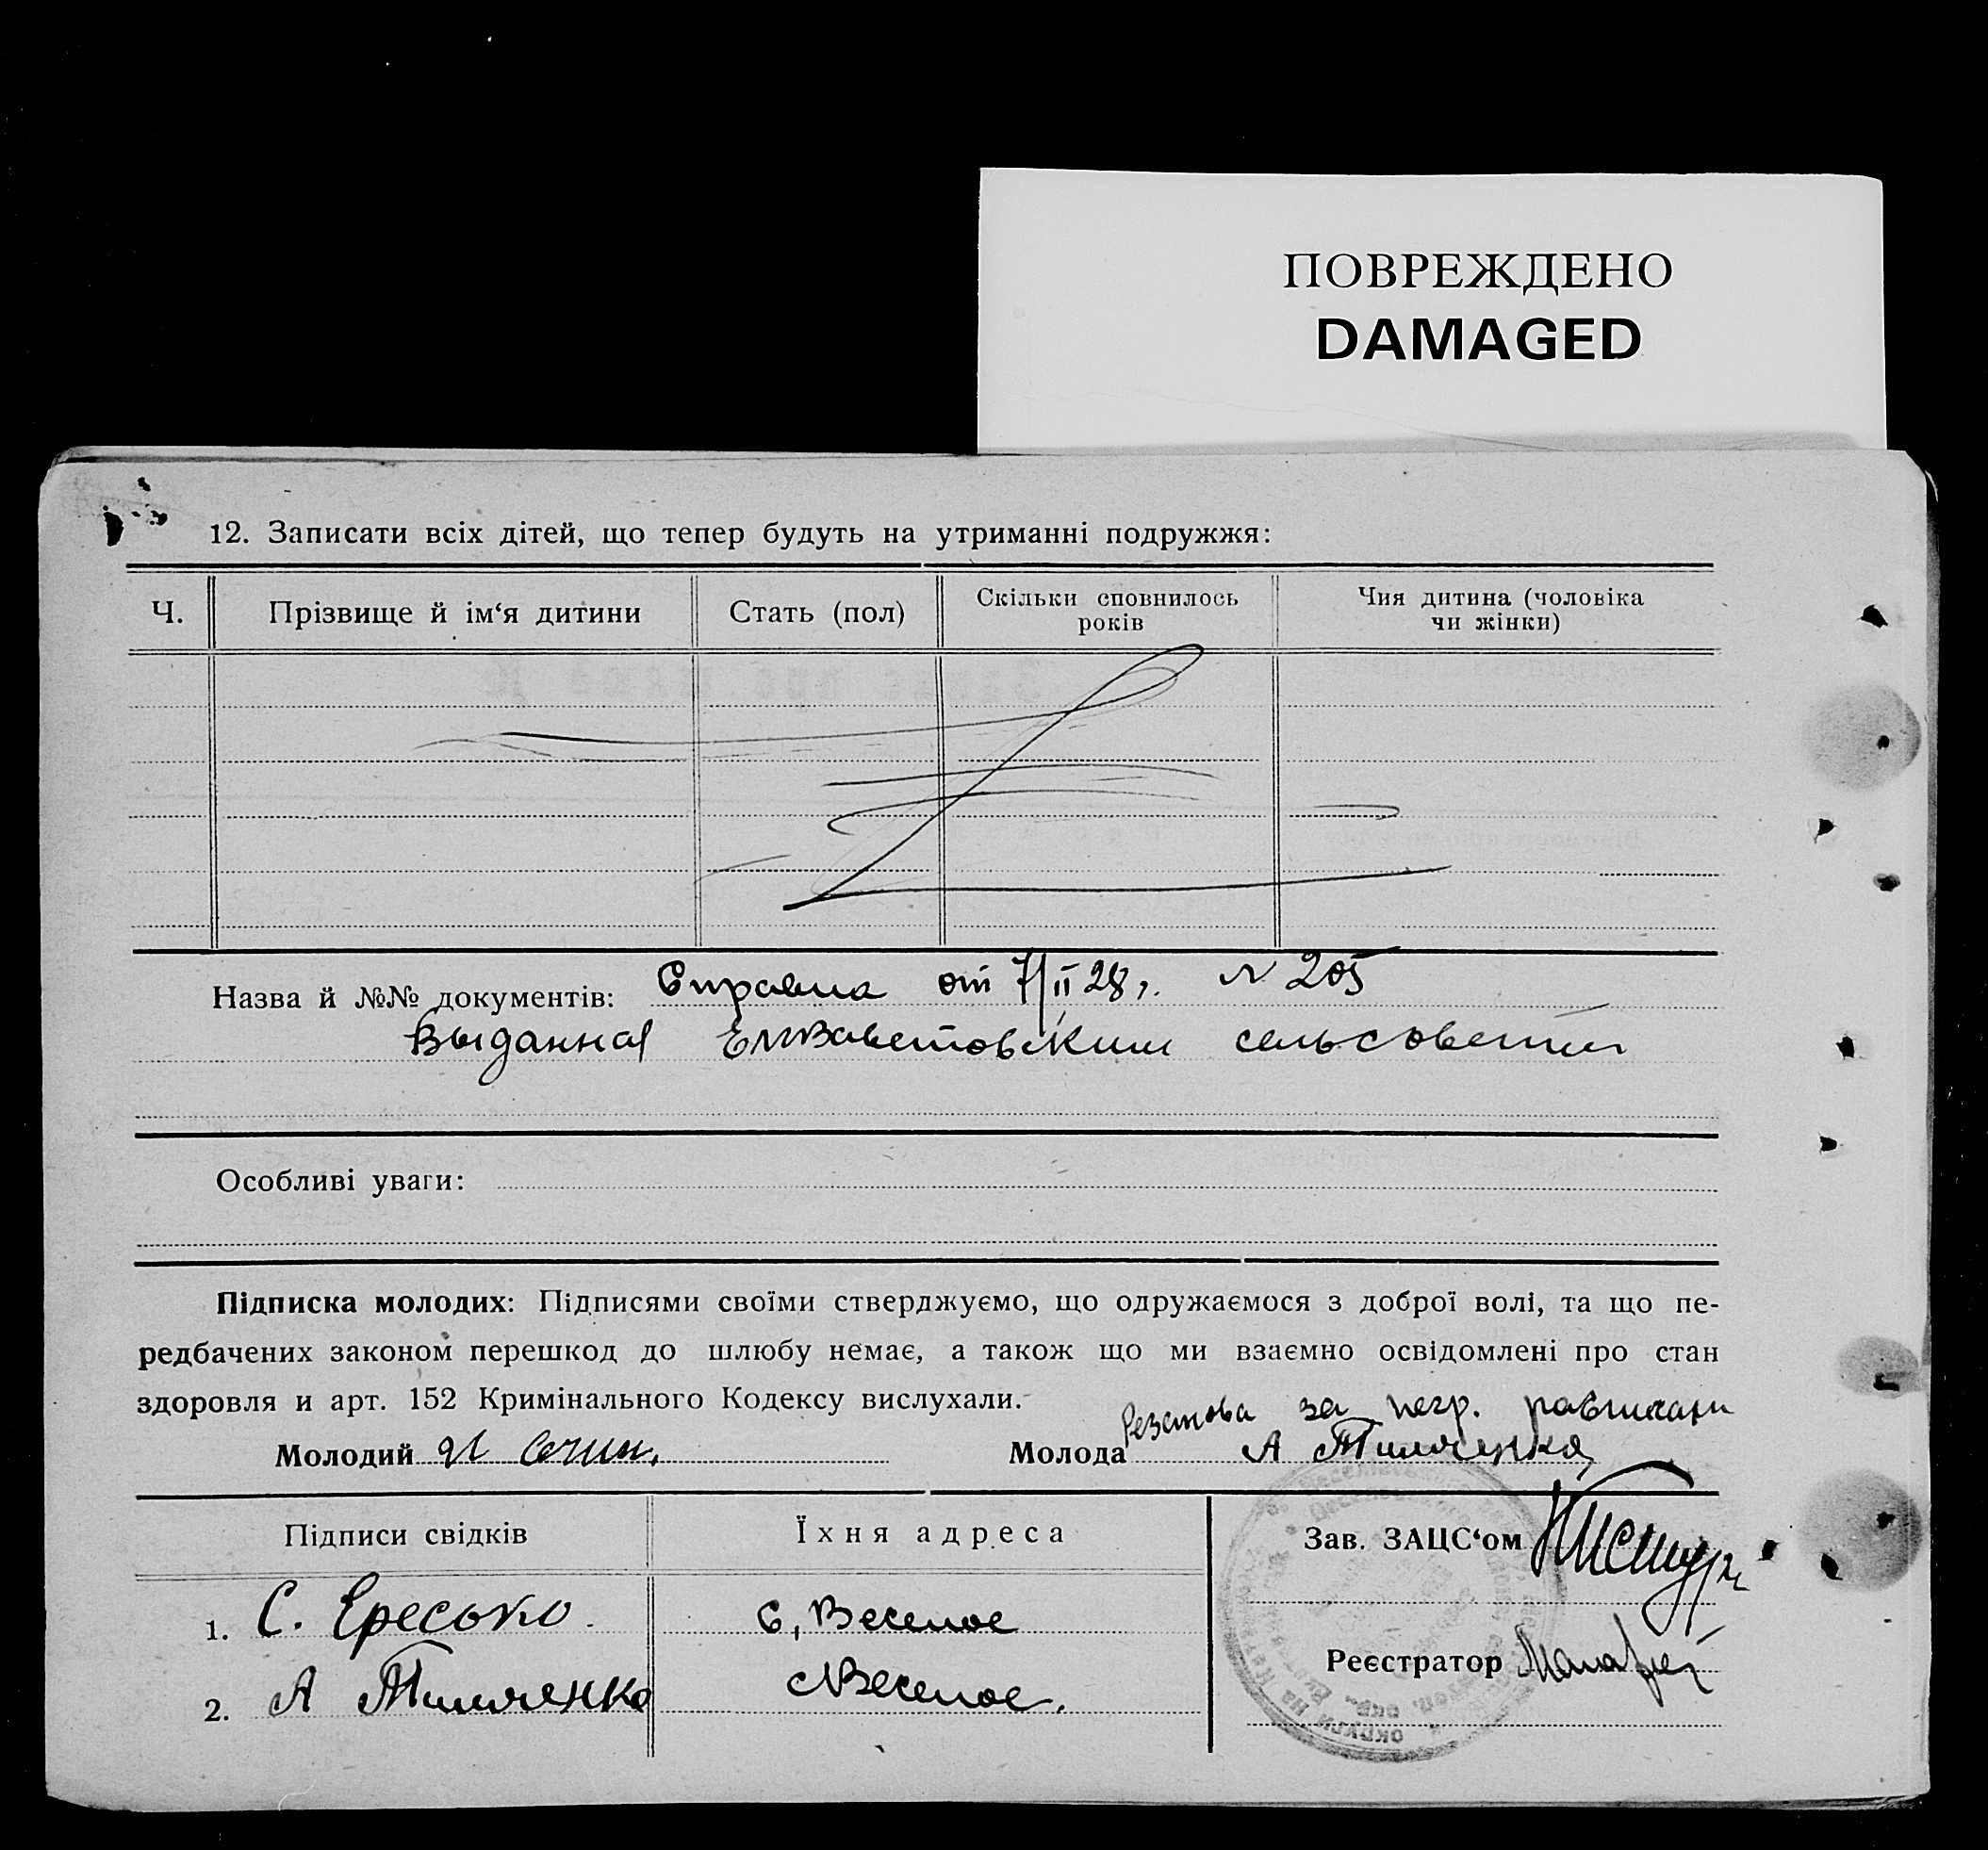 ПОВРЕЖДЕНО
DAMAGED
12. Записати всіх дітей, що тепер будуть на утриманні подружжя:
Ч.
Прізвище й ім‘я дитини
Стать (пол)
Скільки сповнилось
років
Чия дитина (чоловіка
чи жінки)
Назва й №№ документів: Справка от 7/II 28 г. N 205
Выданная Елизаветовским сельсоветом
Особливі уваги:
Підписка молодих: Підписями своїми стверджуємо, що одружаємося з доброї волі, та що пе-
редбачених законом перешкод до шлюбу немає, а також що ми взаємно освідомлені про стан
здоровля и арт. 152 Кримінального Кодексу вислухали.
за негр.
Молодий
Молода А Тимченко
Підписи свідків
Їхня адреса
Зав. ЗАЦС‘ом
1. С. Ересько. с. Веселое
Реєстратор
2. А Тимченко с Веселое.